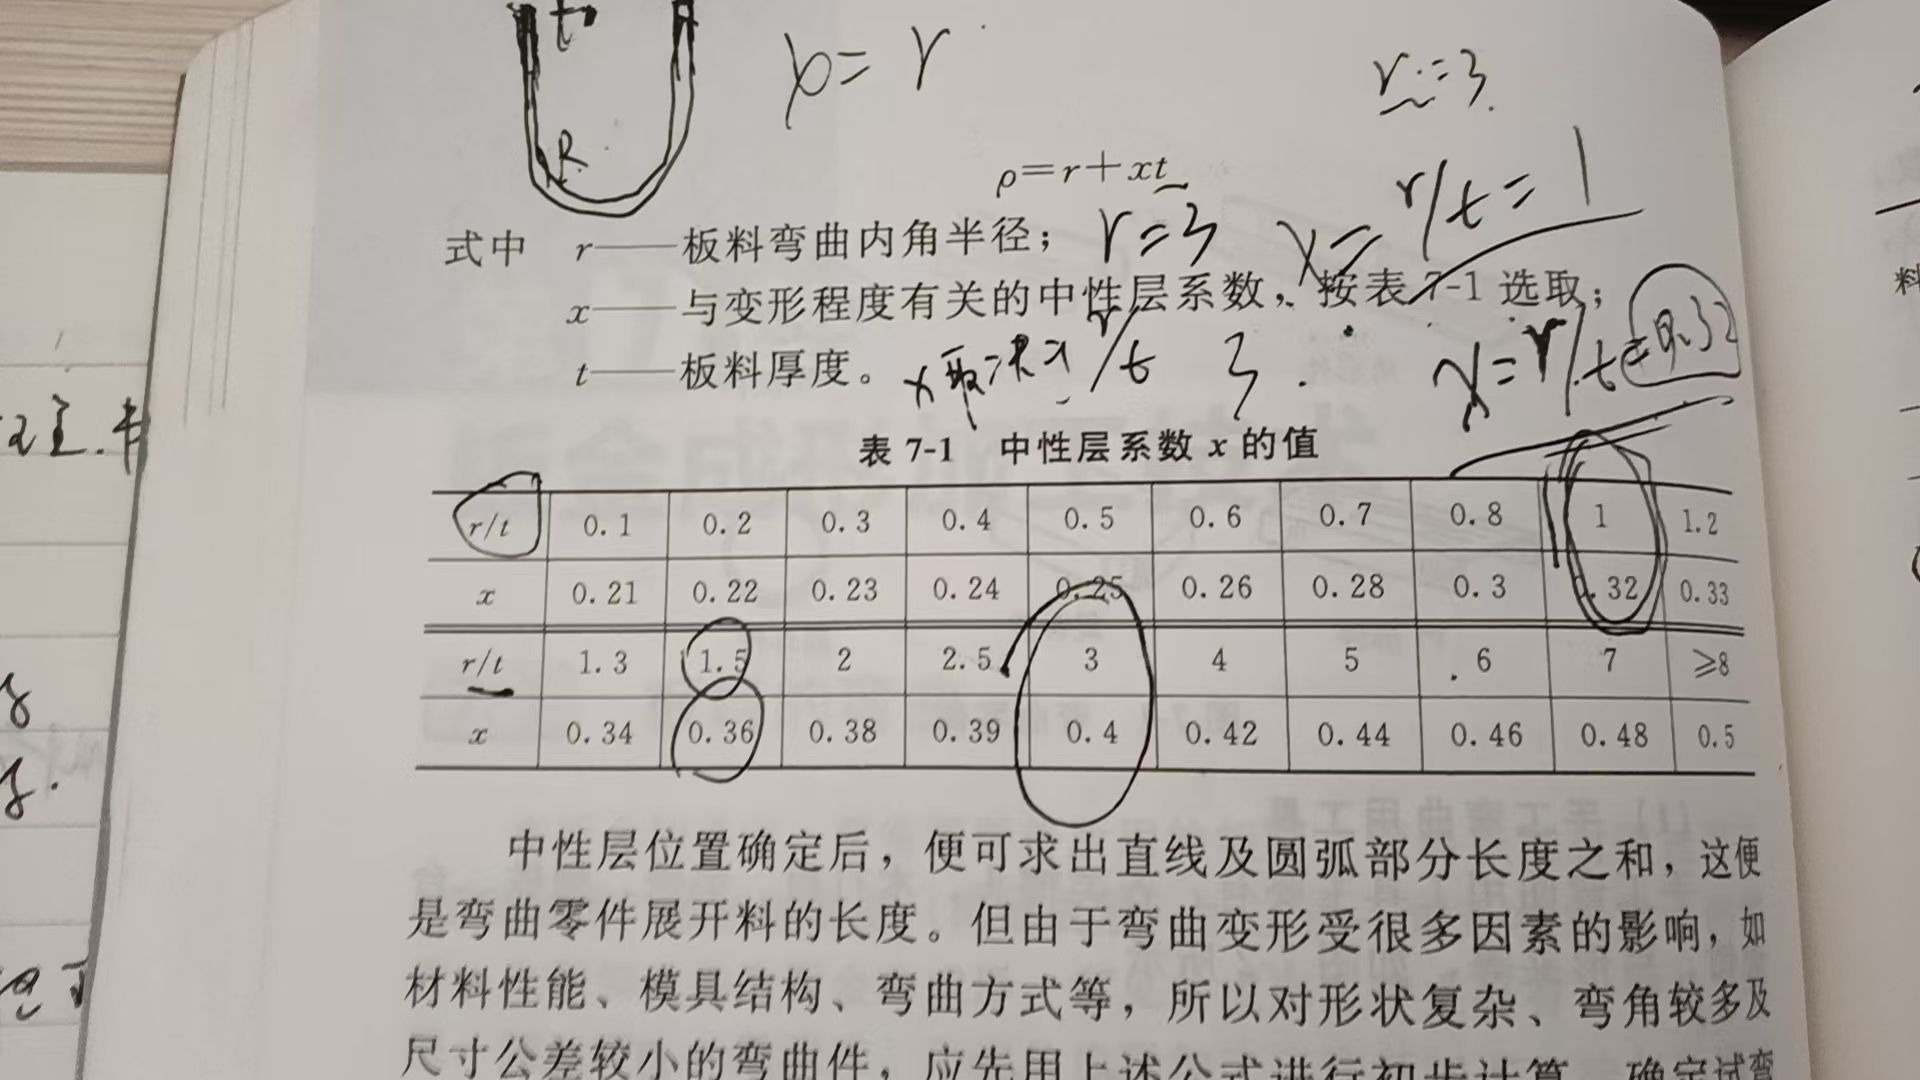 t
ρ=r
r=3
R
ρ=r+xt
r/t=1
式中 r——板料弯曲内角半径； r=3 x=
x——与变形程度有关的中性层系数，按表7-1选取；
t——板料厚度。 r/t 3 x=r/t=0.32
表 7-1 中性层系数 x 的值
r/t 0.1 0.2 0.3 0.4 0.5 0.6 0.7 0.8 1 1.2
x 0.21 0.22 0.23 0.24 0.25 0.26 0.28 0.3 0.32 0.33
r/t 1.3 1.5 2 2.5 3 4 5 6 7 ≥8
x 0.34 0.36 0.38 0.39 0.4 0.42 0.44 0.46 0.48 0.5
中性层位置确定后，便可求出直线及圆弧部分长度之和，这便
是弯曲零件展开料的长度。但由于弯曲变形受很多因素的影响，如
材料性能、模具结构、弯曲方式等，所以对形状复杂、弯角较多及
尺寸公差较小的弯曲件，应先用上述公式进行初步计算，确定试弯
料